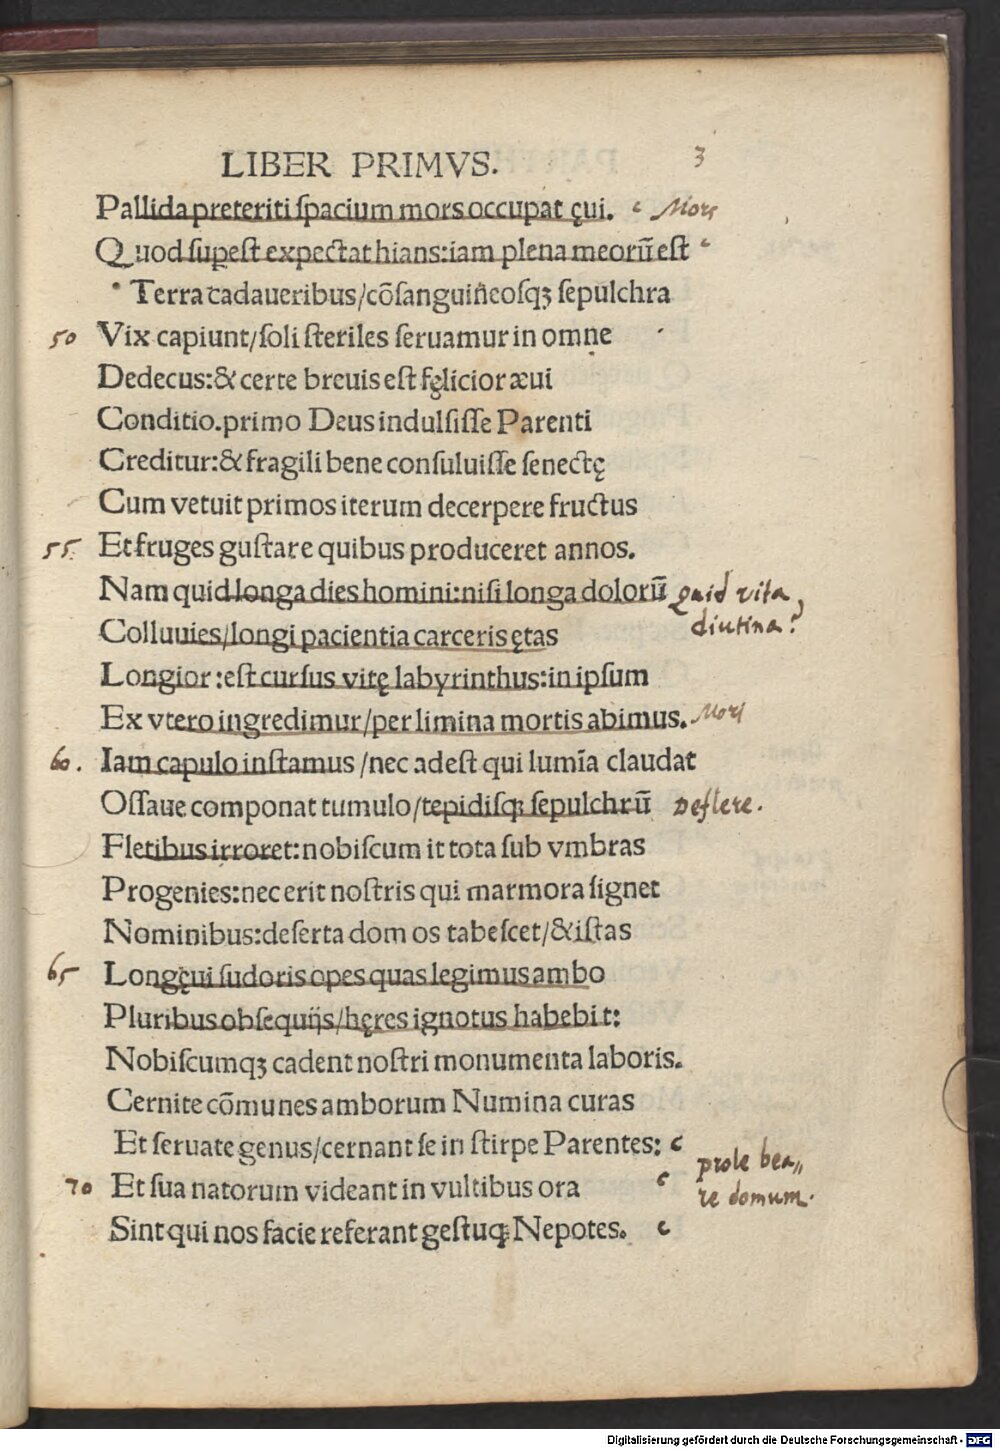 LIBER PRIMVS. 3
Pallida preteriti ſpacium mors occupat ęui. Mors
Quod ſupeſt expectat hians:iam plena meorū eſt
Terra cadaueribus/cōſanguineoſqꝫ ſepulchra
50 Vix capiunt/ſoli ſteriles ſeruamur in omne
Dedecus:& certe breuis eſt fęlicior æui
Conditio.primo Deus indulſiſſe Parenti
Creditur:& fragili bene conſuluiſſe ſenectę
Cum vetuit primos iterum decerpere fructus
55. Et fruges guſtare quibus produceret annos.
Nam quid longa dies homini:niſi longa dolorū quid vita
Colluuies/longi pacientia carceris ętas diutina?
Longior:eſt curſus vitę labyrinthus:in ipſum
Ex vtero ingredimur/per limina mortis abimus. Mors
60. Iam capulo inſtamus/nec adeſt qui lumīa claudat
Oſſaue componat tumulo/tepidiſqꝫ ſepulchrū Deflere.
Fletibus irroret:nobiſcum it tota ſub vmbras
Progenies:nec erit noſtris qui marmora ſignet
Nominibus:deſerta dom os tabeſcet/& iſtas
65 Longęui ſudoris opes quas legimus ambo
Pluribus obſequijs/hęres ignotus habebit:
Nobiſcumqꝫ cadent noſtri monumenta laboris.
Cernite cōmunes amborum Numina curas
Et ſeruate genus/cernant ſe in ſtirpe Parentes: prole bea„
70 Et ſua natorum videant in vultibus ora re domum.
Sint qui nos facie referant geſtuqꝫ Nepotes.
Digitalisierung gefördert durch die Deutsche Forschungsgemeinschaft - DFG